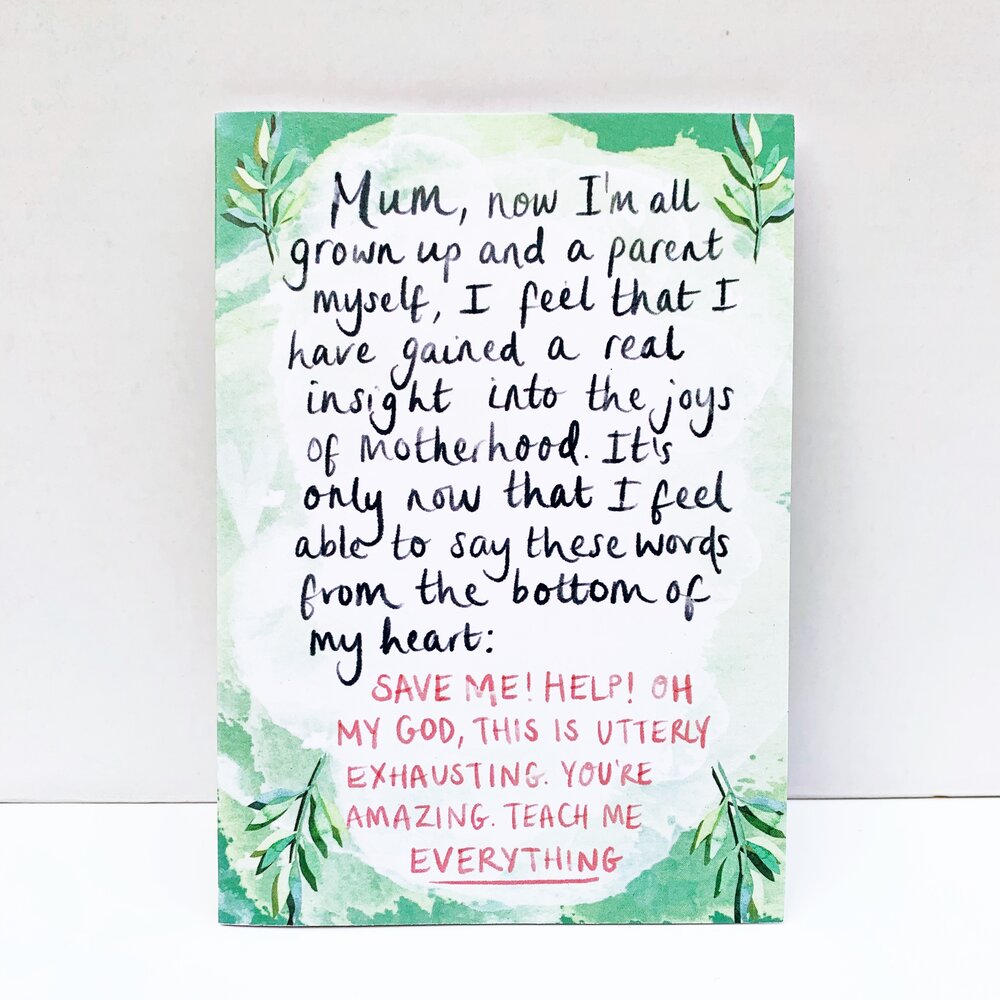 Mum, now I'm all
grown up and a parent
myself, I feel that I
have gained a real
insight into the joys
of motherhood. It's
only now that I feel
able to say these words
from the bottom of
my heart:
SAVE ME! HELP! OH
MY GOD, THIS IS UTTERLY
EXHAUSTING. YOU'RE
AMAZING. TEACH ME
EVERYTHING